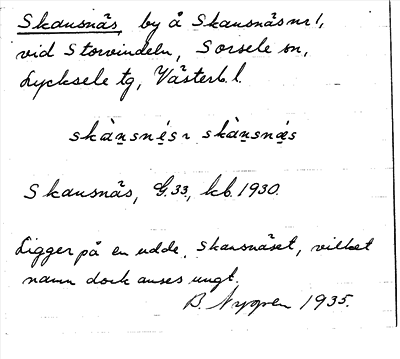 Skansnäs, by å Skansnäs nr 1,
vid Storvindeln, Sorsele sn,
Lycksele tg, Västerb. l.
skàn̥snẹ́s ~ skàn̥snæ̣s
Skansnäs, G.33, kb. 1930.
Ligger på en udde, Skansnäset, vilket
namn dock anses ungt.
B. Nygren 1935.